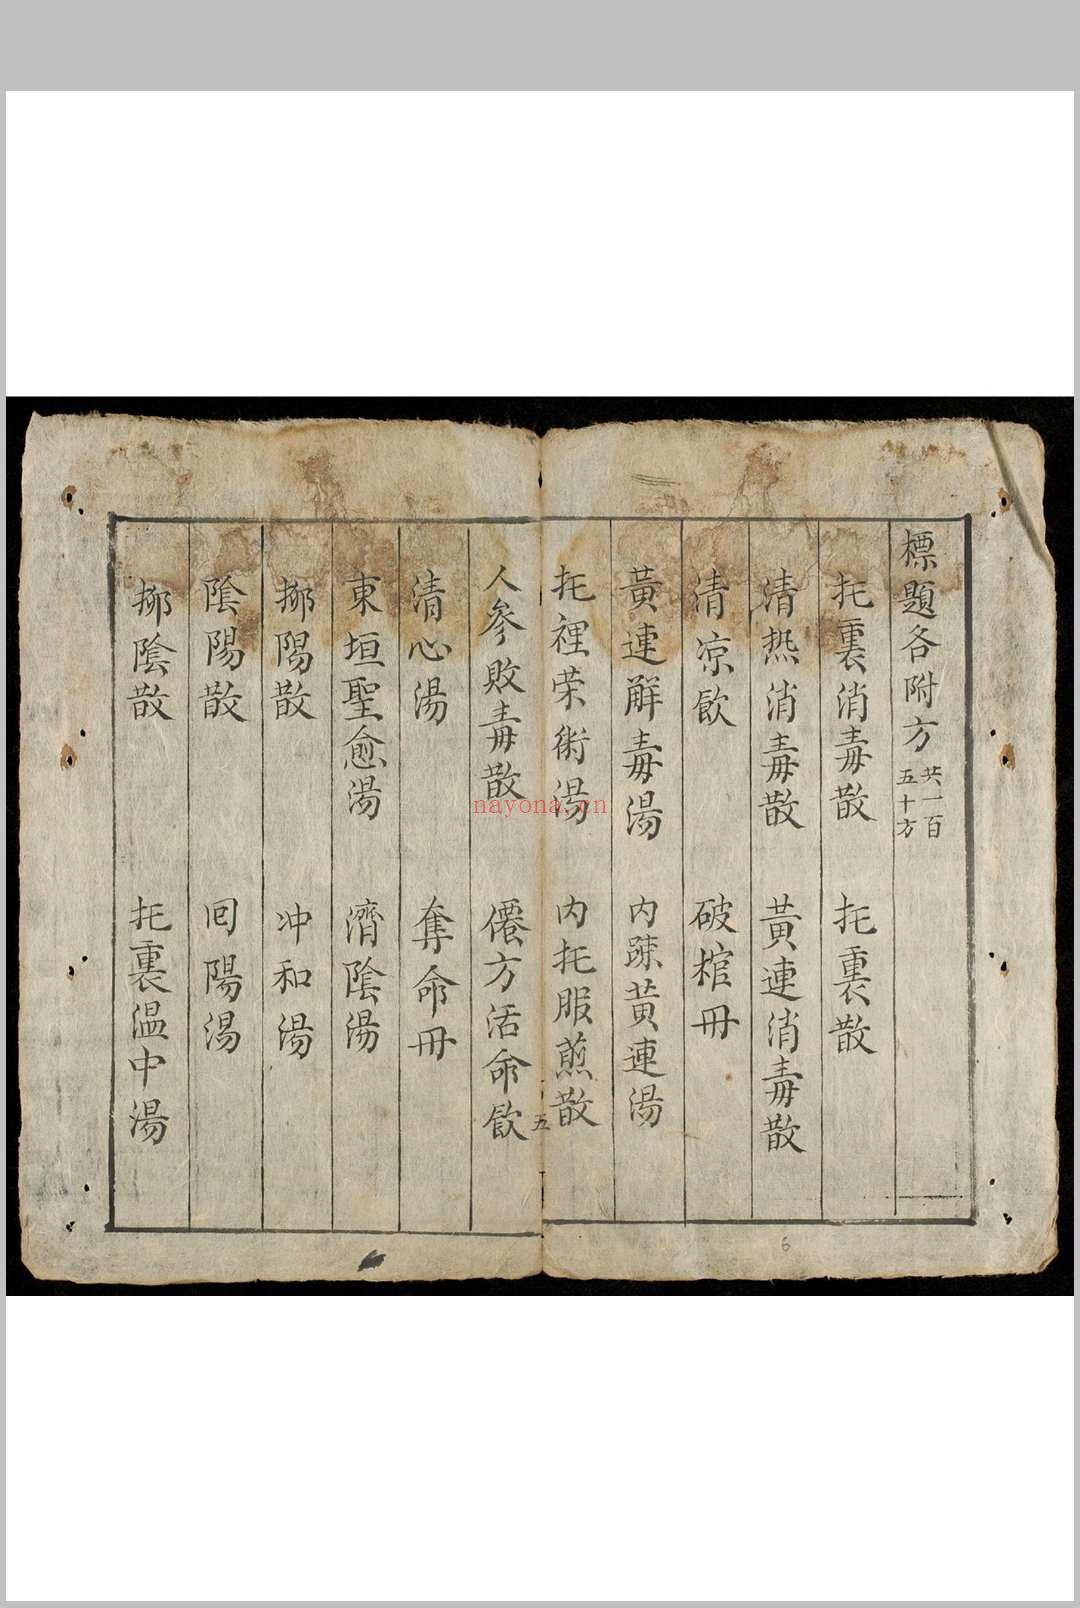 標題各附方 共一百五十方
托裏消毒散 托裏散
清热消毒散 黃連消毒散
清凉飲 破棺冊
黃連解毒湯 内踈黃連湯
托裡荣術湯 内托服煎散
五
人參敗毒散 僊方活命飲
清心湯 奪命冊
東垣聖愈湯 濟陰湯
挪陽散 冲和湯
陰陽散 囘陽湯
挪陰散 托裏温中湯
6
nayona.cn